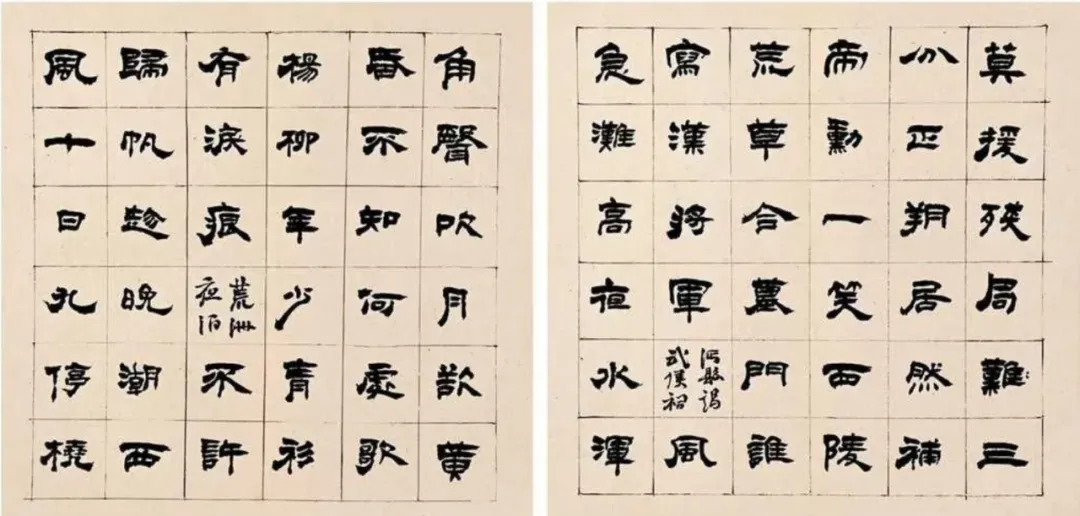 莫援殘局難三
分正朔居然補
帝勳一笑西陵
荒草合墓門誰
寫漢將軍謁武侯祠風
急灘高夜水渾
角聲吹月欲黃
昏不知何處歌
楊柳年少青衫
有淚痕荒洲夜泊不許
歸帆趁晚潮西
風十日孔停橈